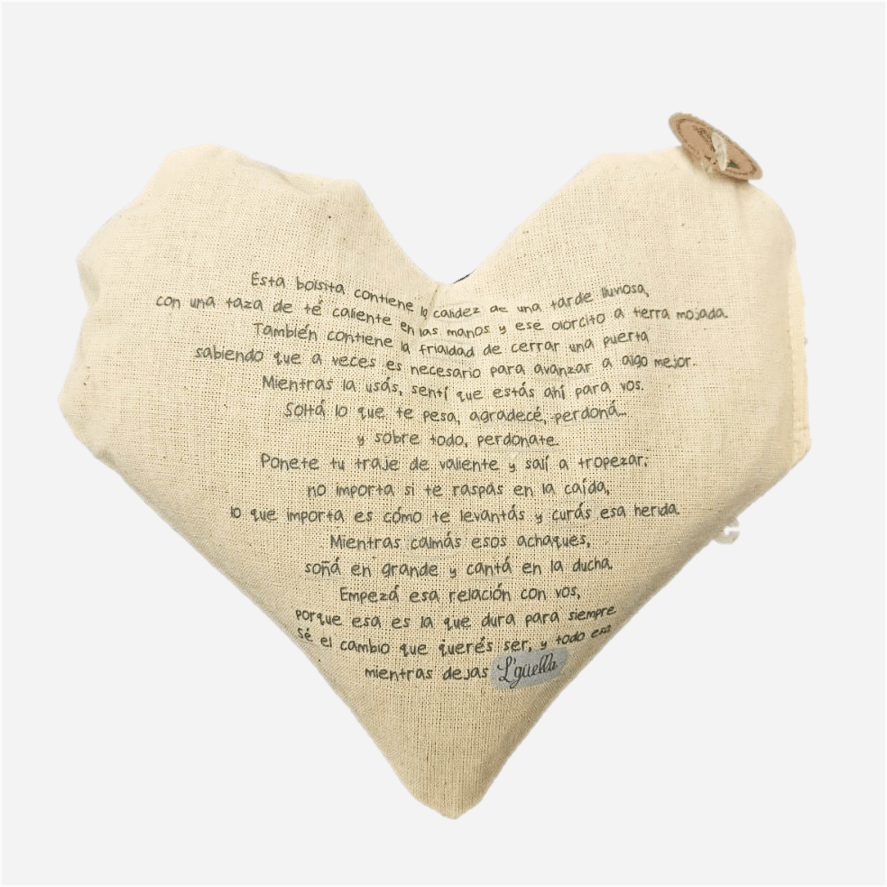 Esta bolsita contiene la calidez de una tarde lluviosa,
con una taza de té caliente en las manos y ese olorcito a tierra mojada.
También contiene la frialdad de cerrar una puerta
sabiendo que a veces es necesario para avanzar a algo mejor.
Mientras la usás, sentí que estás ahí para vos.
Soltá lo que te pesa, agradecé, perdoná...
y sobre todo, perdonate.
Ponete tu traje de valiente y salí a tropezar;
no importa si te raspás en la caída,
lo que importa es cómo te levantás y curás esa herida.
Mientras calmás esos achaques,
soñá en grande y cantá en la ducha.
Empezá esa relación con vos,
porque esa es la que dura para siempre
Sé el cambio que querés ser, y todo eso
mientras dejas L'güella